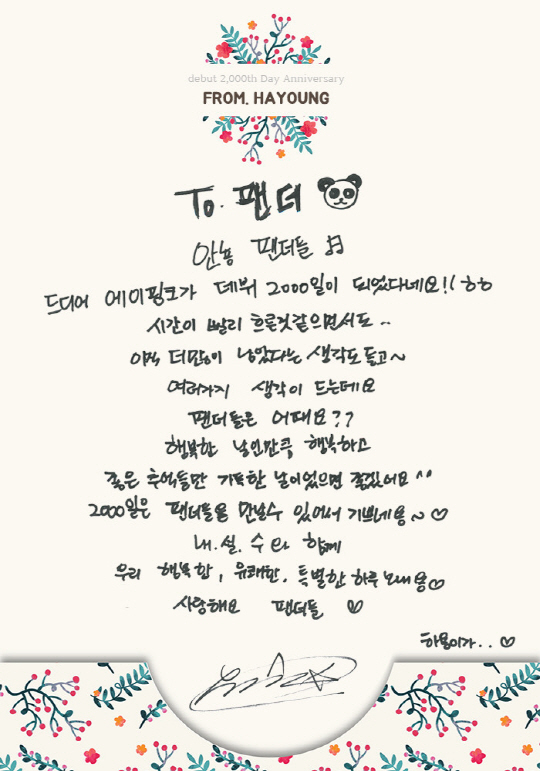 debut 2,000th Day Anniversary
FROM. HAYOUNG
To. 팬더
안뇽 팬더들
드디어 에이핑크가 데뷔 2000일이 되었다네요!! ㅎㅎ
시간이 빨리 흐른것같으면서도..
아직 더많이 남았다는 생각도 들고~
여러가지 생각이 드는데요
팬더들은 어때요??
행복한 날인만큼 행복하고
좋은 추억들만 가득한 날이었으면 좋겠어요 ^^
2000일은 팬더들을 만날수 있어서 기쁘네용~ ♡
내.실.수 와 함께
우리 행복한, 유쾌한, 특별한 하루 보내용♡
사랑해요 팬더들 ♡
하용이가.. ♡